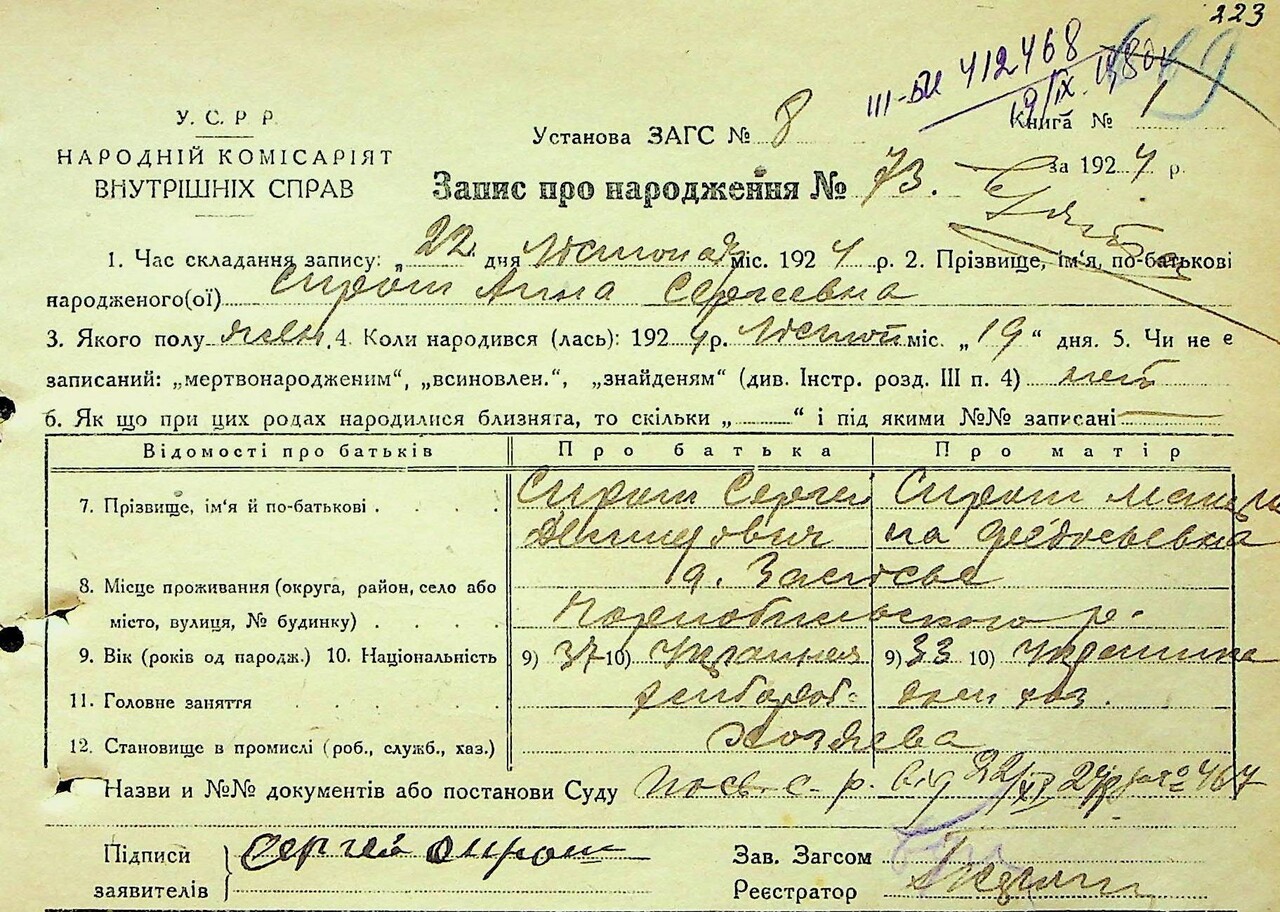 223
III-БИ 412468
19/IX
У. С. Р Р.
НАРОДНІЙ КОМІСАРІЯТ
ВНУТРІШНІХ СПРАВ
Установа ЗАГС № 8
Книга № 1
за 1924 р.
Запис про народження № 73.
1. Час складання запису: „22“ дня міс. 1924 р. 2. Прізвище, ім'я, по-батькові
народженого(ої) Сирот Анна Сергеевна
3. Якого полу жен. 4. Коли народився (лась): 1924 р. міс. „19“ дня. 5. Чи не є
записаний: „мертвонародженим“, „всиновлен.“, „знайденям“ (див. Інстр. розд. III п. 4) нет
6. Як що при цих родах народилися близнята, то скільки „ “ і під якими №№ записані
Відомості про батьків Про батька Про матір
7. Прізвище, ім'я й по-батькові Сирот Сергей Сирот
Демидович
8. Місце проживання (округа, район, село або
місто, вулиця, № будинку) Чорнобильского р.
9. Вік (років од народж.) 10. Національність 9) 37 10) 9) 33 10)
11. Головне заняття хлібороб.
12. Становище в промислі (роб., служб., хаз.) Хозяева
Назви и №№ документів або постанови Суду Посв. с. р. від 22/XI 24 р. № 467
Підписи
заявителів
Сергей Сирот
Зав. Загсом
Реєстратор